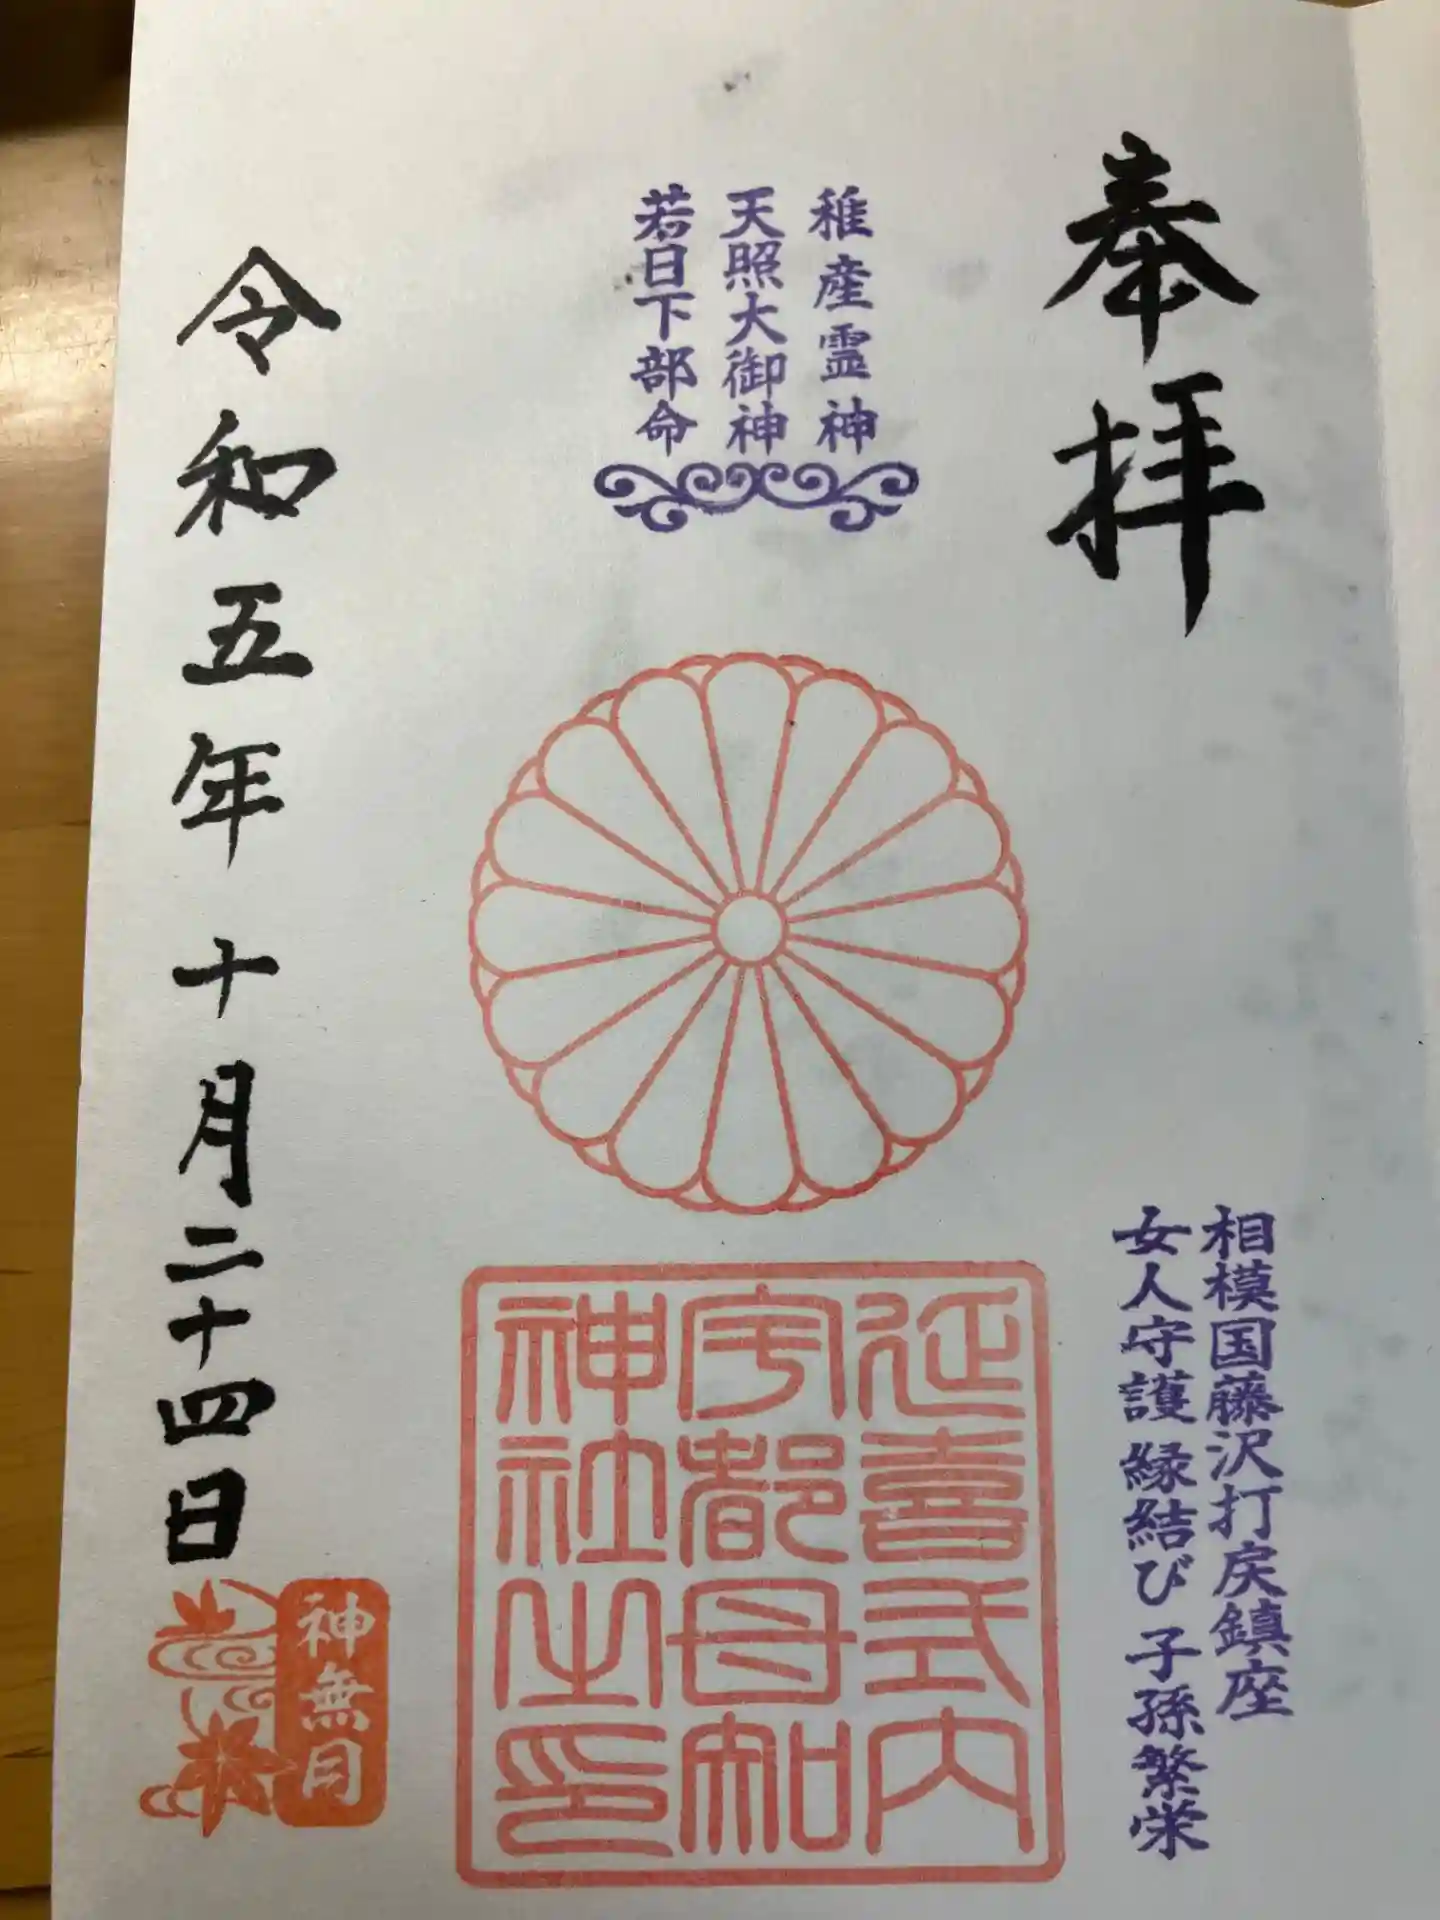 奉拝
相模国藤沢打戻鎮座
女人守護 縁結び 子孫繁栄
稚産霊神
天照大御神
若日下部命
延喜式内
宇都母知
神社之印
令和五年十月二十四日
神無月